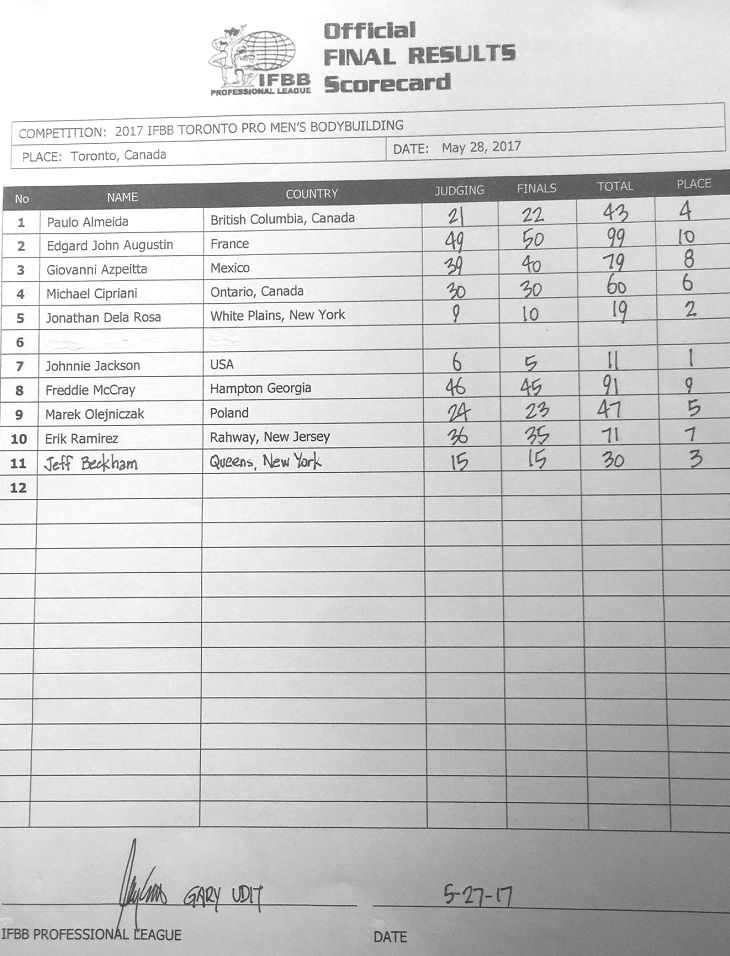 Official
FINAL RESULTS
Scorecard
IFBB
PROFESSIONAL LEAGUE
COMPETITION: 2017 IFBB TORONTO PRO MEN'S BODYBUILDING
PLACE: Toronto, Canada DATE: May 28, 2017
No NAME COUNTRY JUDGING FINALS TOTAL PLACE
1 Paulo Almeida British Columbia, Canada 21 22 43 4
2 Edgard John Augustin France 49 50 99 10
3 Giovanni Azpeitta Mexico 39 40 79 8
4 Michael Cipriani Ontario, Canada 30 30 60 6
5 Jonathan Dela Rosa White Plains, New York 9 10 19 2
6
7 Johnnie Jackson USA 6 5 11 1
8 Freddie McCray Hampton Georgia 46 45 91 9
9 Marek Olejniczak Poland 24 23 47 5
10 Erik Ramirez Rahway, New Jersey 36 35 71 7
11 Jeff Beckham Queens, New York 15 15 30 3
12
GARY UDIT 5-27-17
IFBB PROFESSIONAL LEAGUE DATE